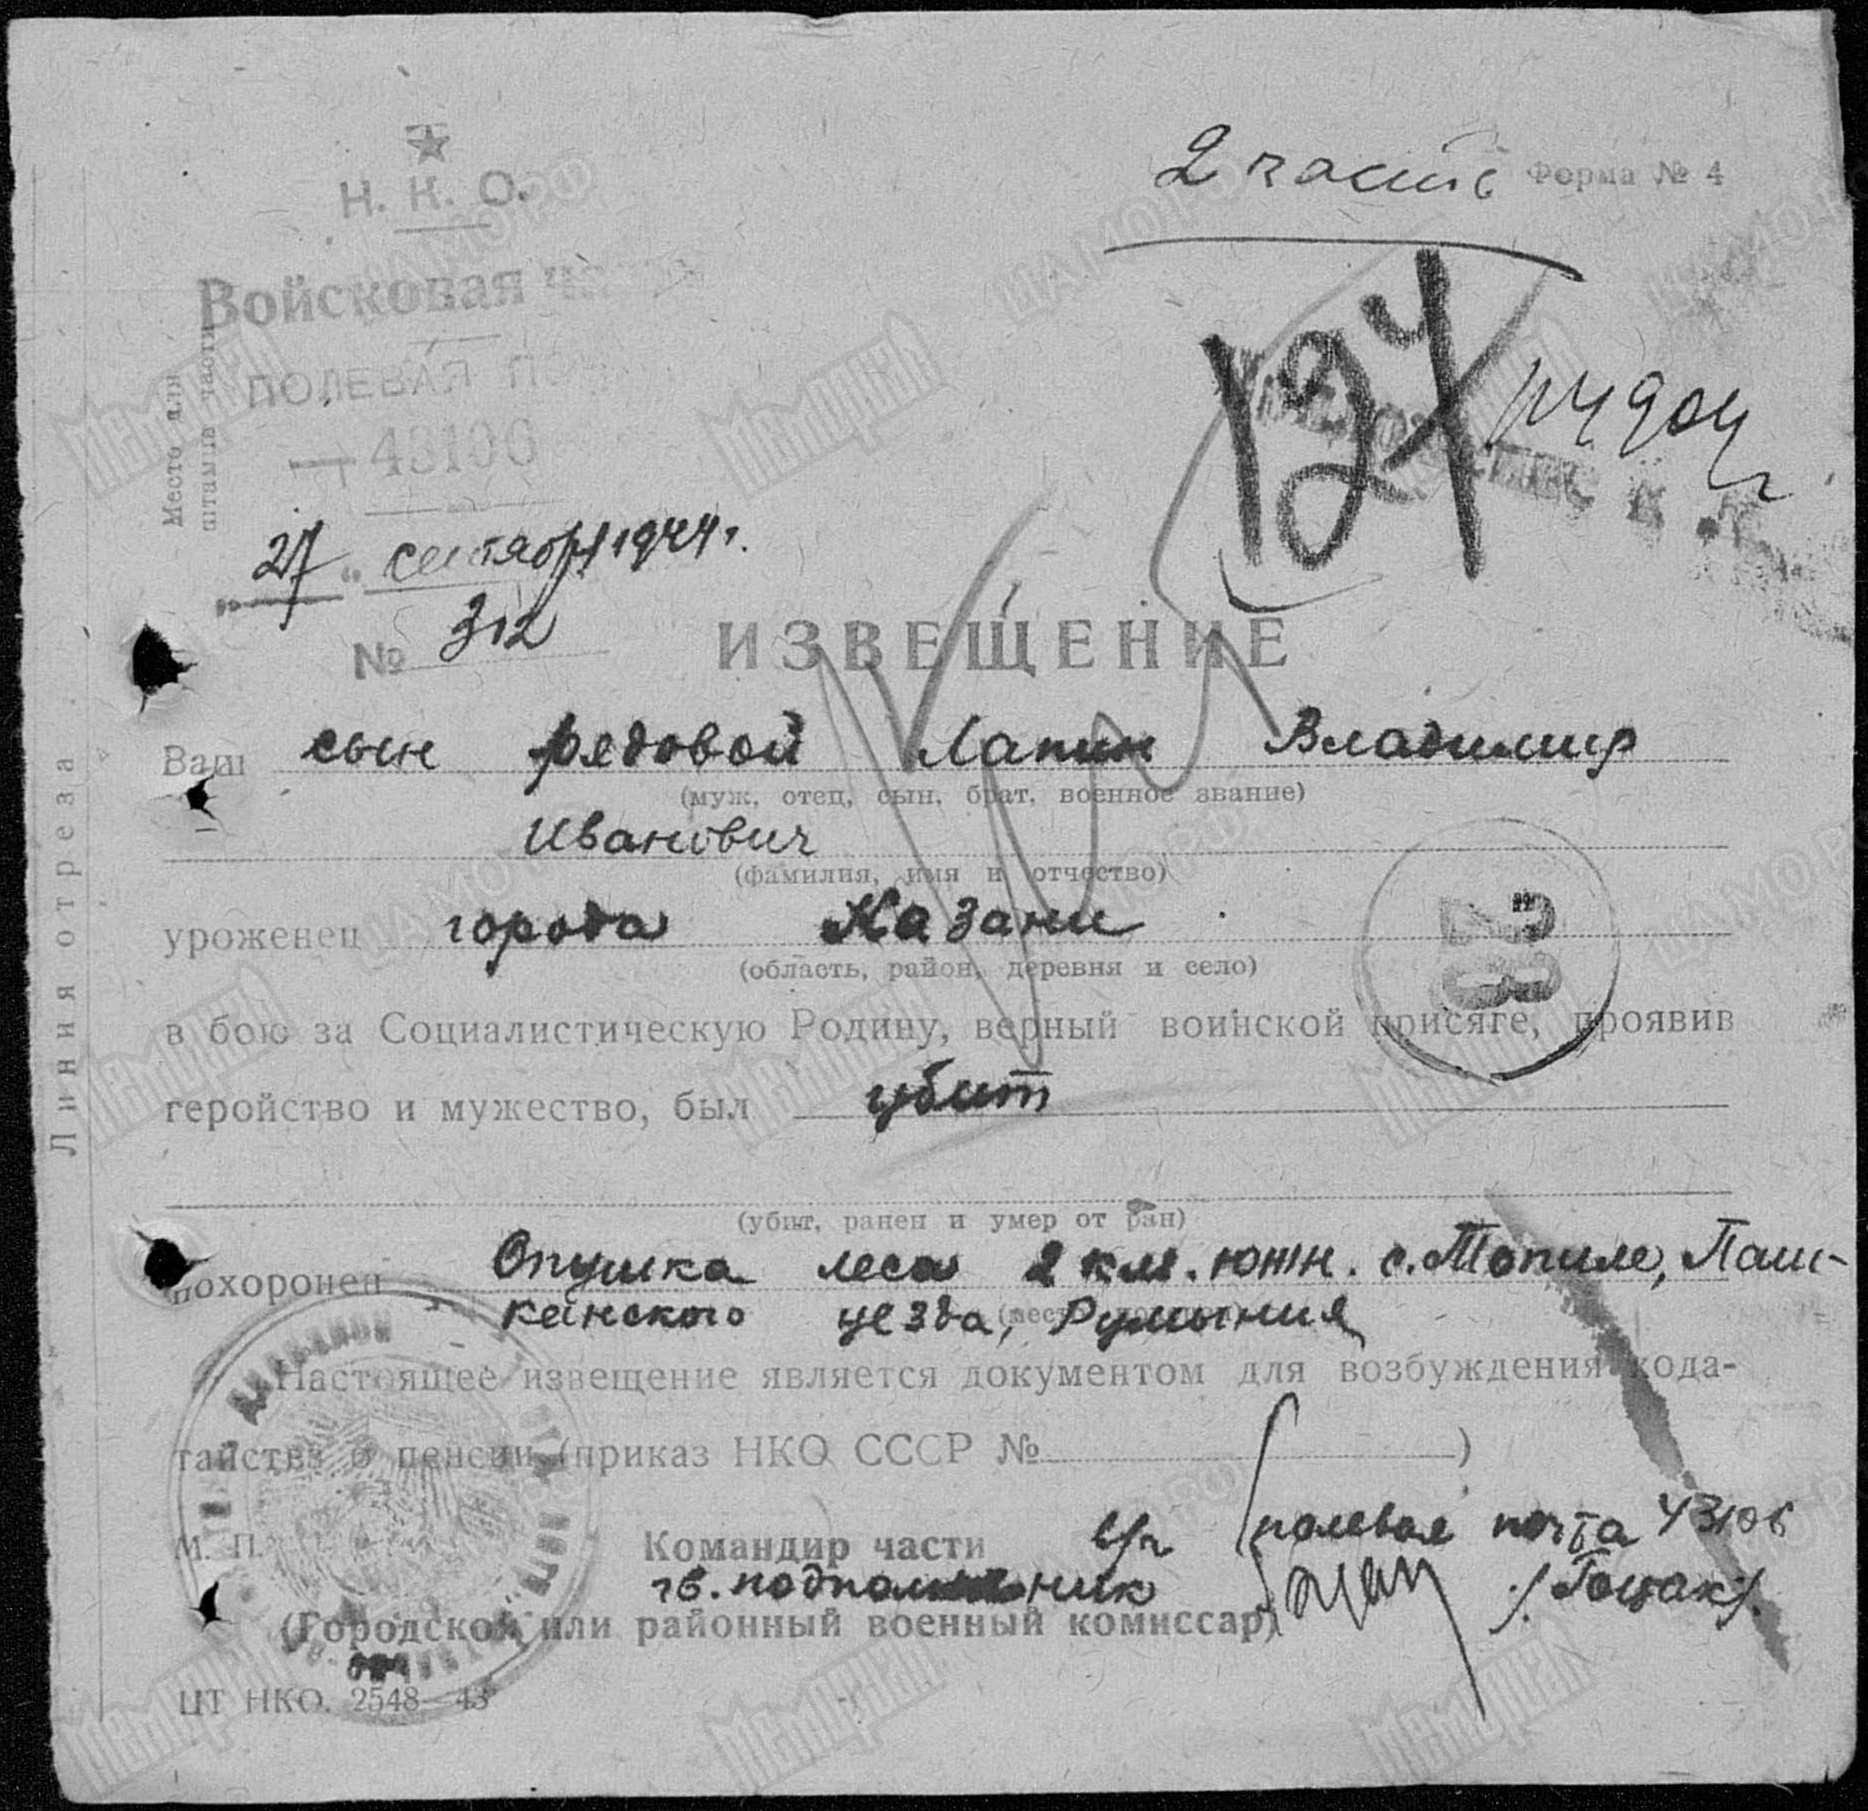 2 часть Форма № 4
Н. К. О.
Войсковая часть
Место для штампа части
ПОЛЕВАЯ
43106
124
"27" сентября 1944 г.
№ 312
ИЗВЕЩЕНИЕ
Ваш сын рядовой Лапин Владимир
(муж, отец, сын, брат, военное звание)
Иванович
(фамилия, имя и отчество)
уроженец города Казани
(область, район, деревня и село)
в бою за Социалистическую Родину, верный воинской присяге, проявив
геройство и мужество, был убит
(убит, ранен и умер от ран)
похоронен Опушка леса 2 км. южн. с. Топиле, Паш-
канского уезда, Румыния
Настоящее извещение является документом для возбуждения хода-
тайства о пенсии (приказ НКО СССР № )
М. П.
Командир части в/ч полевая почта 43106
гв. подполковник /Гоцак/
(Городской или районный военный комиссар)
ЦТ НКО. 2548—43
Линия отреза
Мемориал
ЦАМО РФ